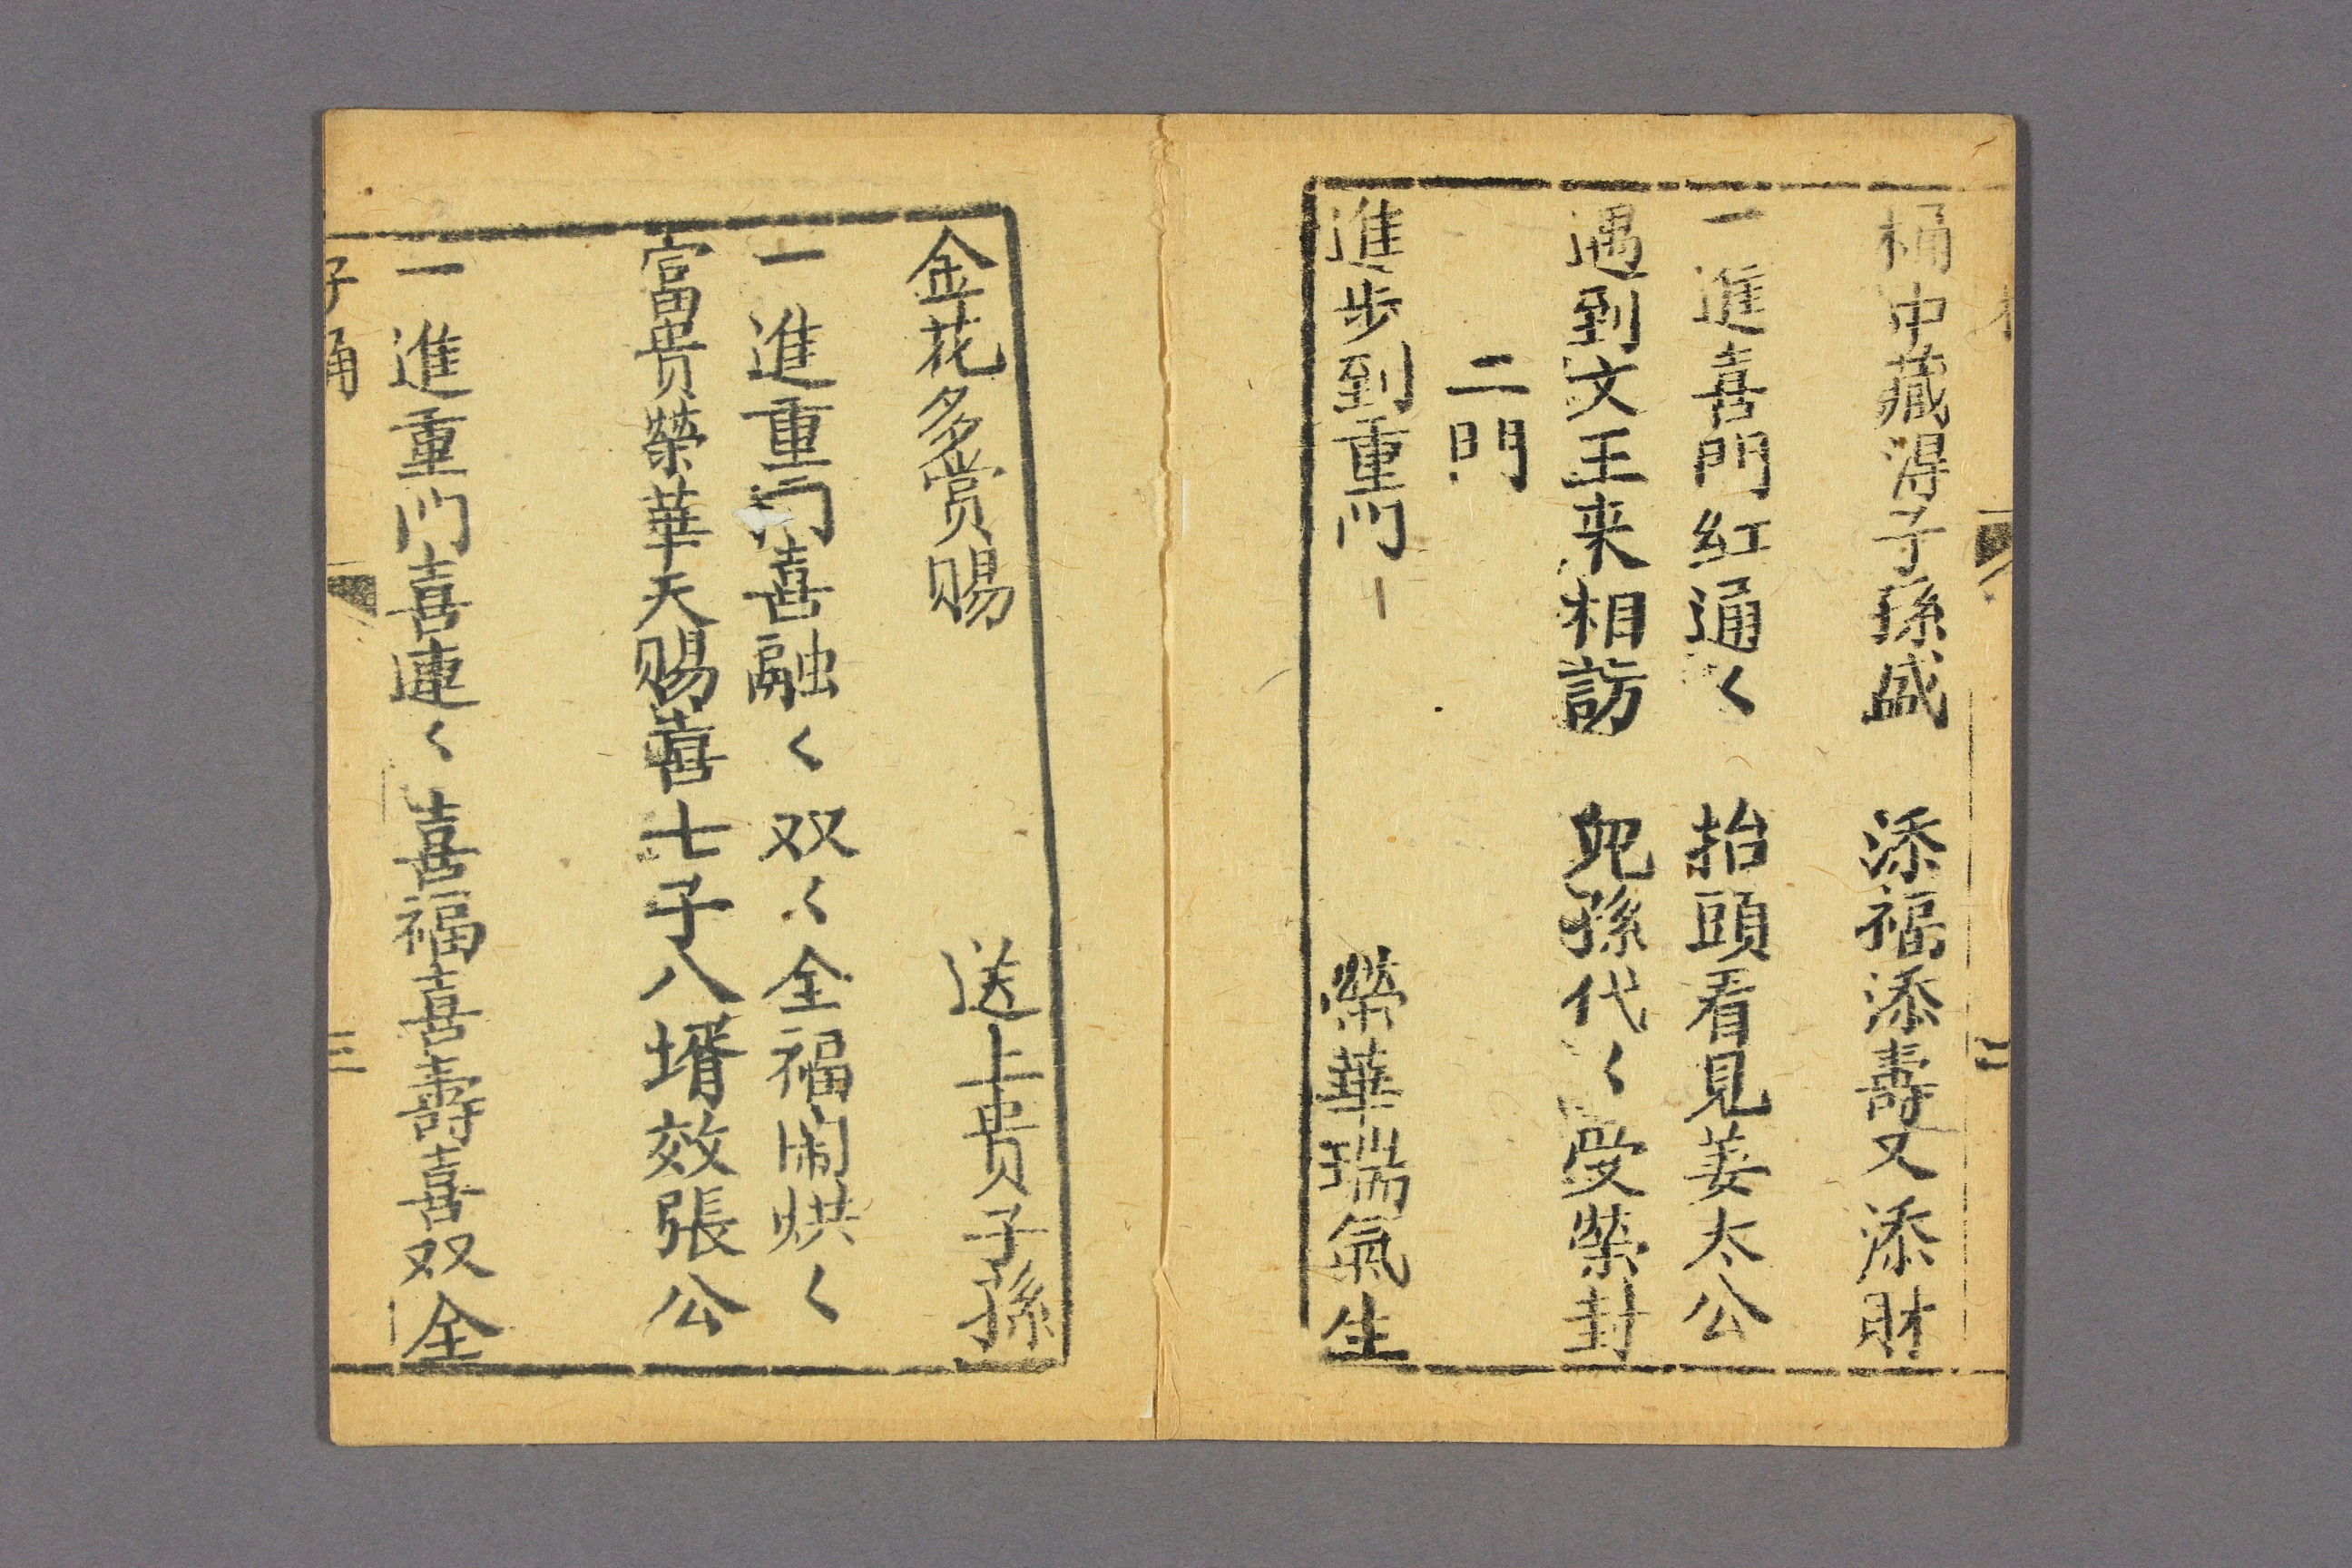 桶中藏淂子孫盛　添福添壽又添財
一進喜門紅通〱　抬頭看見姜太公
遇到文王来相訪　兒孫代〱受榮封
二門
進步到重门　榮華瑞氣生
二
金花多赏赐　送上贵子孫
一進重门喜融〱双〱全福闹烘〱
富贵榮華天赐喜七子八壻效張公
一進重门喜連〱喜福喜壽喜双全
子桶
三